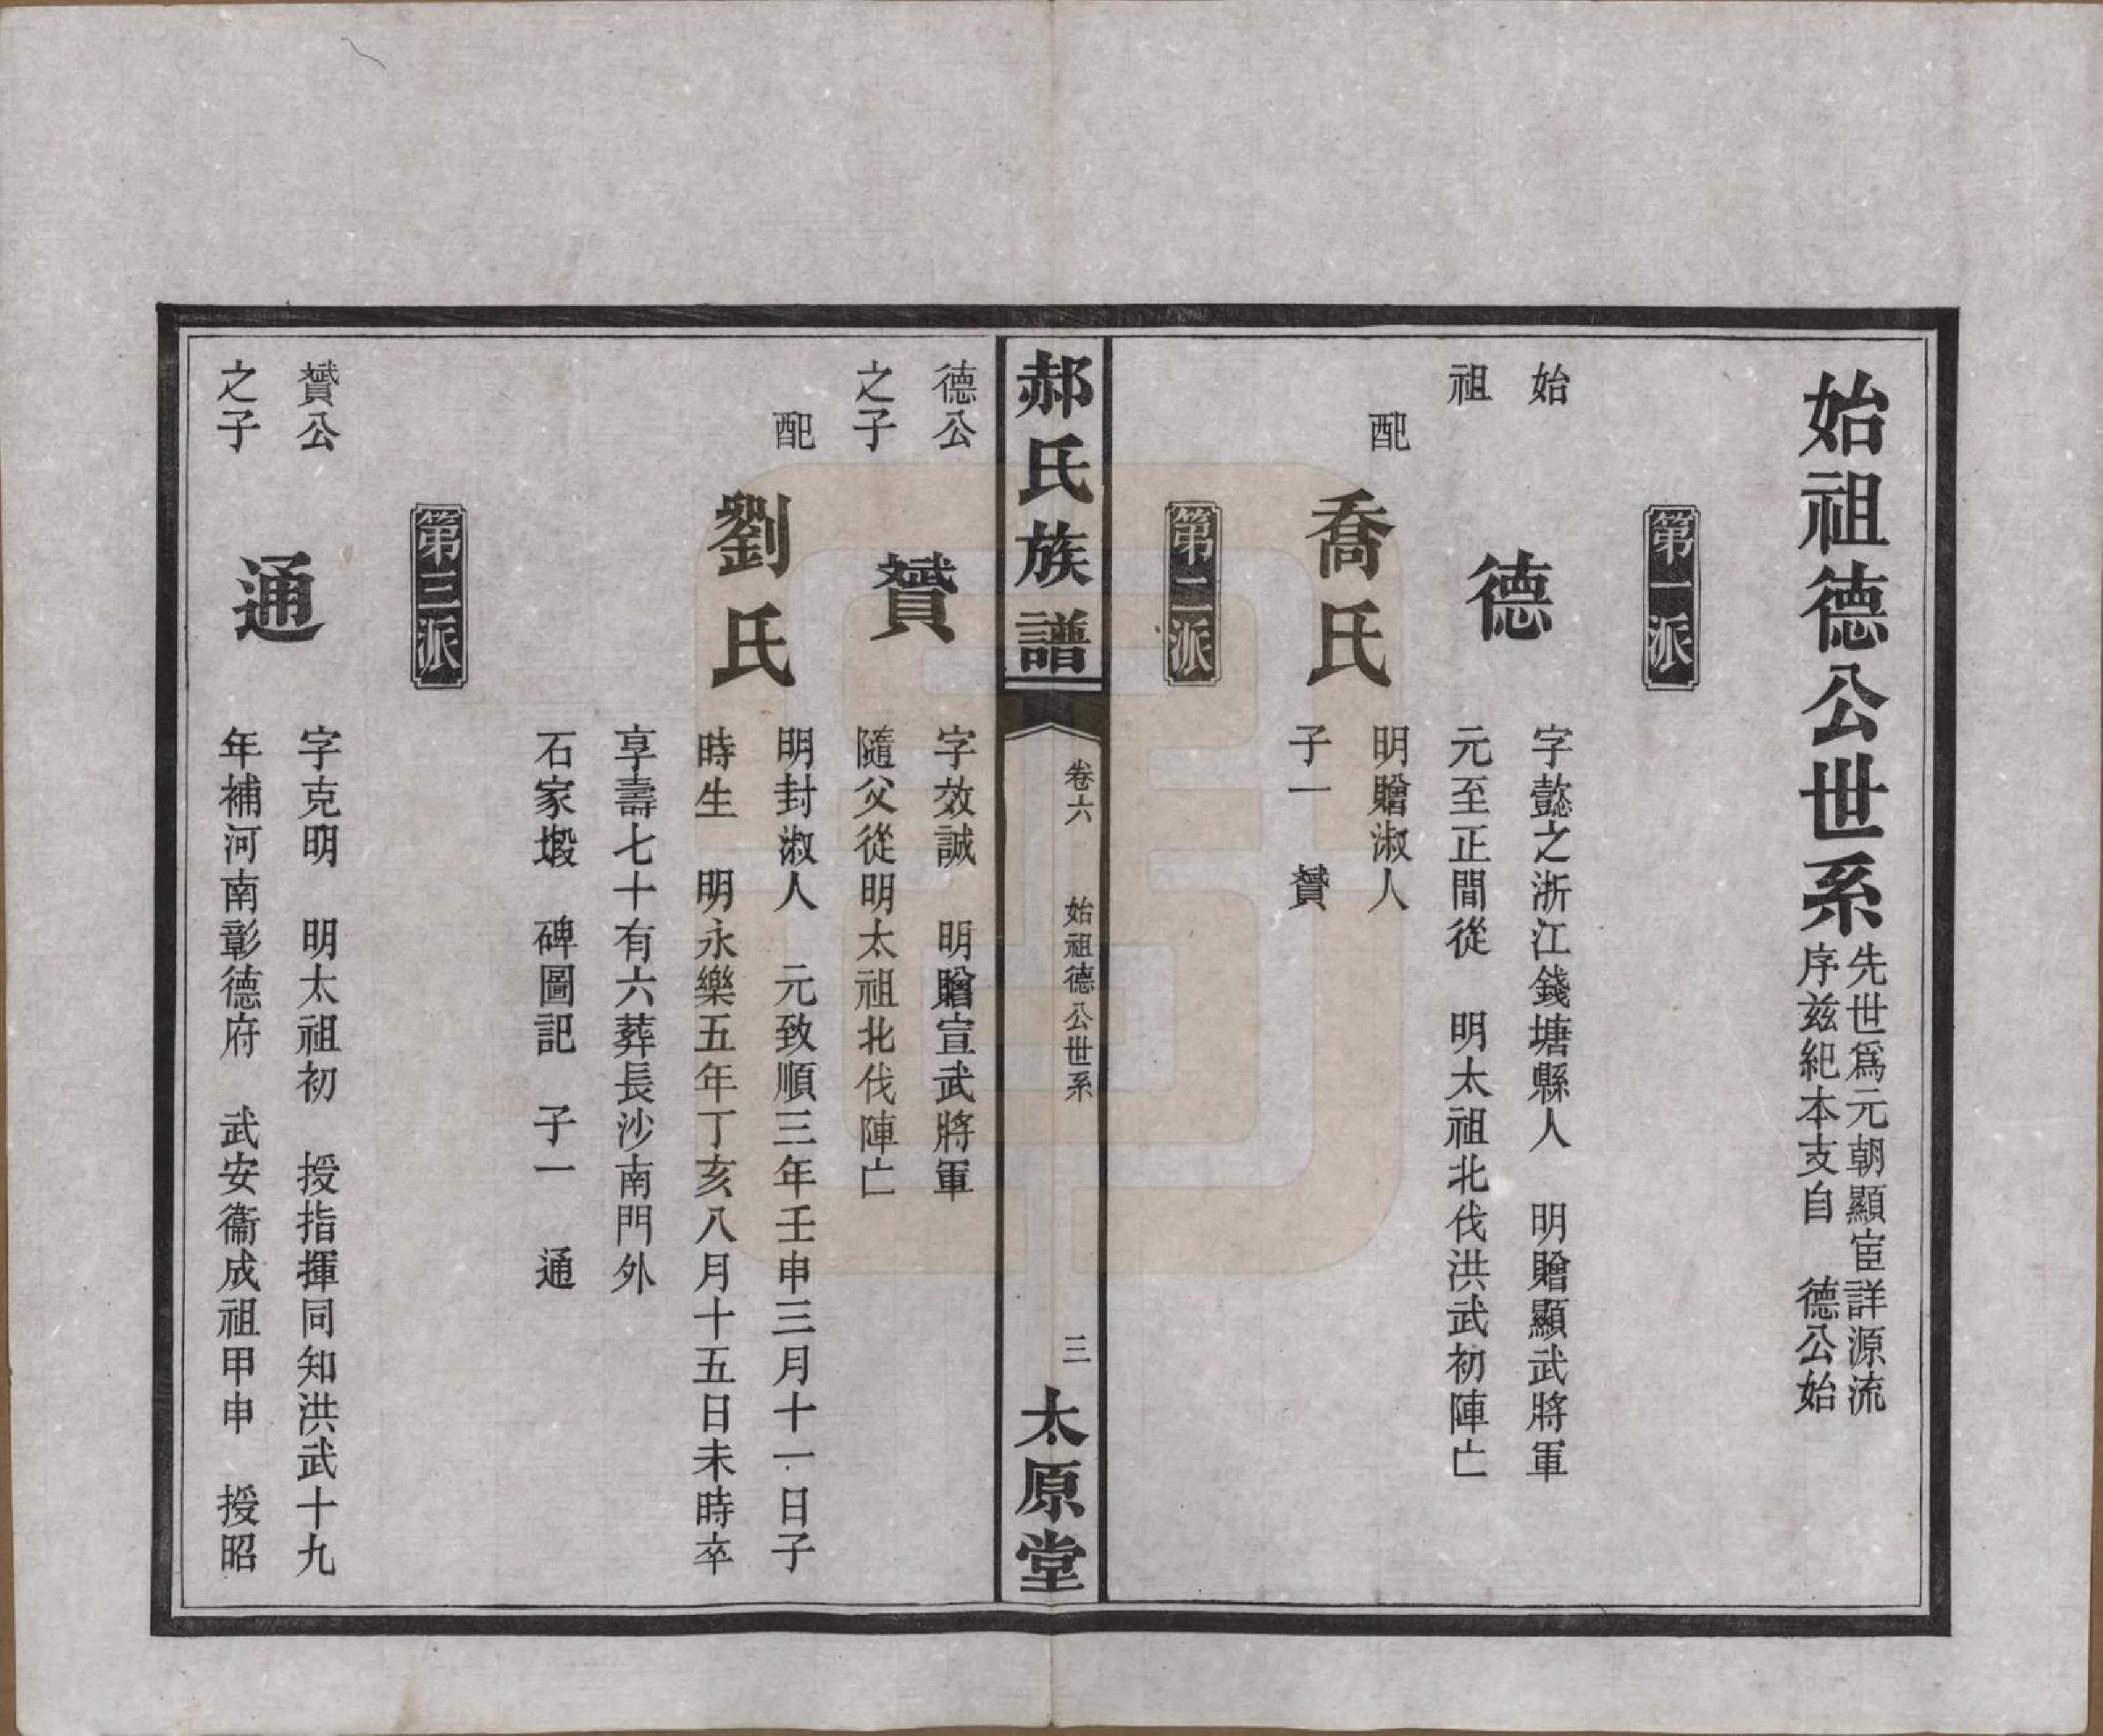 始祖德公世系
先世爲元朝顯宦詳源流
序茲紀本支自　德公始
第一派
始祖
德
字懿之浙江錢塘縣人　明贈顯武將軍
元至正間從　明太祖北伐洪武初陣亡
配
喬氏
明贈淑人
子一　贇
第二派
郝氏族譜
卷六　始祖德公世系
三
太原堂
德公之子
贇
字效誠　明贈宣武將軍
隨父從明太祖北伐陣亡
配
劉氏
明封淑人　元致順三年壬申三月十一日子
時生　明永樂五年丁亥八月十五日未時卒
享壽七十有六葬長沙南門外
石家塅　碑圖記　子一　通
第三派
贇公之子
通
字克明　明太祖初　授指揮同知洪武十九
年補河南彰德府　武安衞成祖甲申　授昭